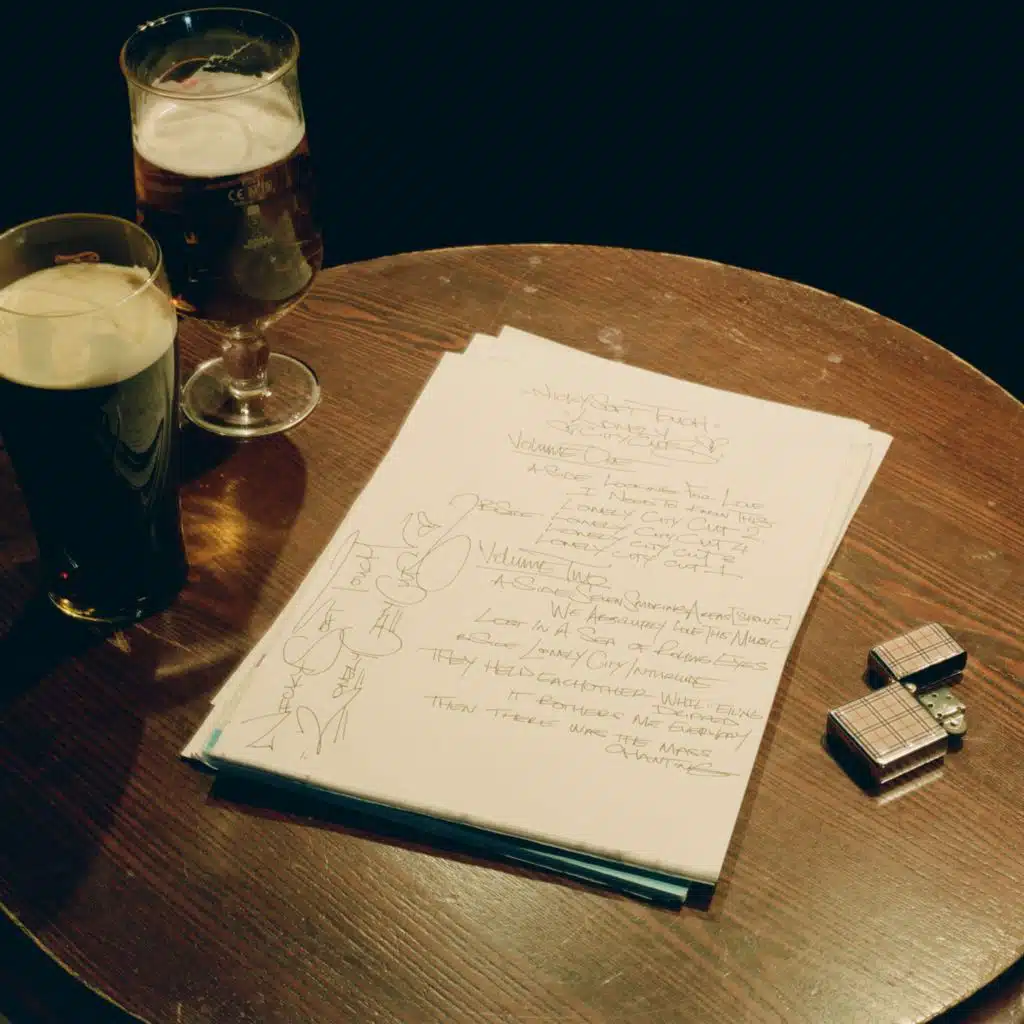 NICKY SOFT TOUCH
LONELY
CITY CUTS
VOLUME ONE
A-SIDE LOOKING FOR LOVE
I NEED TO KNOW THIS
LONELY CITY CUT 2
BSIDE - LONELY CITY CUT 4
LONELY CITY CUT 3
LONELY CITY CUT 1
VOLUME TWO
A-SIDE SEVEN SMOKING AREAS [SHOWS]
WE ABSOLUTELY LOVE THE MUSIC
LOST IN A SEA OF ROLLING EYES
BSIDE LONELY CITY INTERLUDE
THEY HELD EACHOTHER WHILE
DRIPPED
IT BOTHERS ME EVERYDAY
THEN THERE WAS THE MASS
CHANTING
CE M